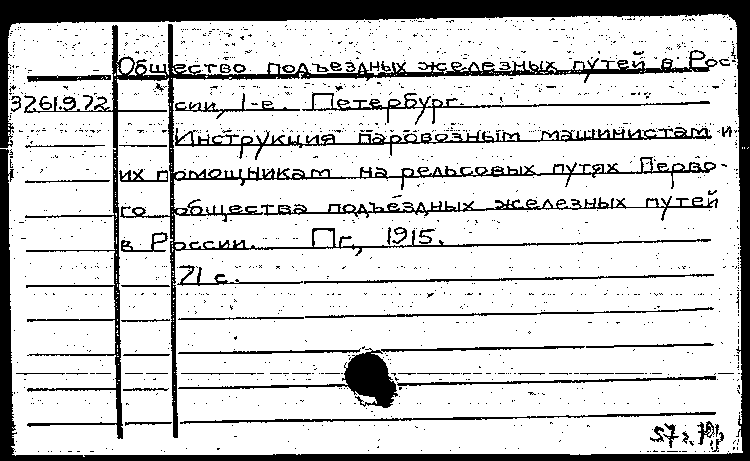 Общество подъездных железных путей в Рос
3261.9.72 сии, 1-е. Петербург.
Инструкция паровозным машинистам и
их помощникам на рельсовых путях Перво-
го общества подъездных железных путей
в России. Пг., 1915.
71 с.
57 г.